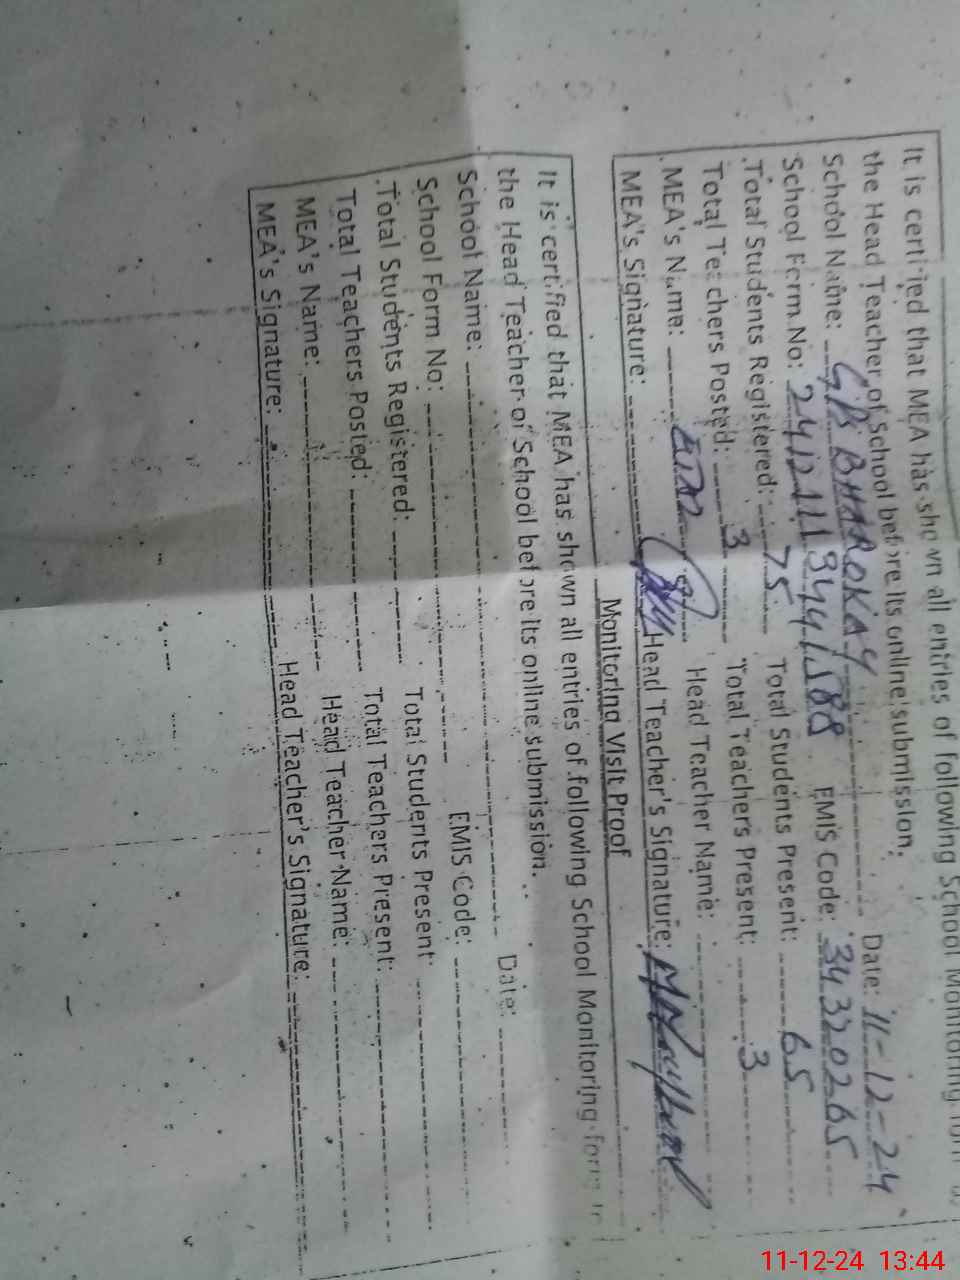 It is certified that MEA has shown all entries of following School Monitoring form to
the Head Teacher of School before its online submission.
School Name: GPS BHAROKAY Date: 11-12-24
School Form No: 24121113441588 EMIS Code: 34320265
Total Students Registered: 75 Total Students Present: 65
Total Teachers Posted: 3 Total Teachers Present: 3
MEA's Name: Head Teacher Name:
MEA's Signature: Head Teacher's Signature:
Monitoring Visit Proof
It is certified that MEA has shown all entries of following School Monitoring form to
the Head Teacher of School before its online submission.
School Name: Date:
School Form No: EMIS Code:
Total Students Registered: Total Students Present:
Total Teachers Posted: Total Teachers Present:
MEA's Name: Head Teacher Name:
MEA's Signature: Head Teacher's Signature:
11-12-24 13:44